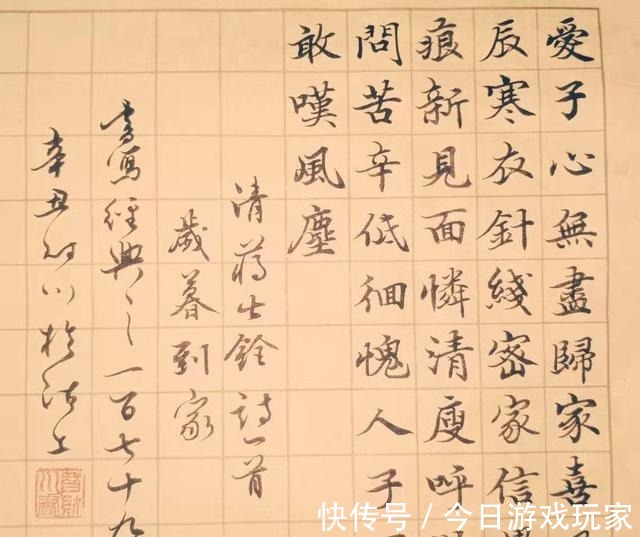 愛子心無盡歸家喜
辰寒衣針綫密家信
痕新見面憐清瘦呼
問苦辛低徊愧人子
敢嘆風塵
清蔣士銓詩一首
歲暮到家
書寫經典之一百七十九
辛丑
快传号 / 今日游戏玩家